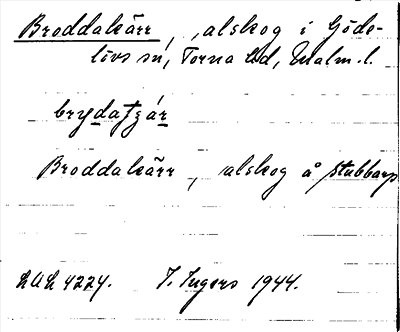 Broddakärr, alskog i Göde-
lövs sn, Torna hd, Malm. l.
Broddakärr, alskog å Stubbarp
LUL 4224. I. Ingers 1944.